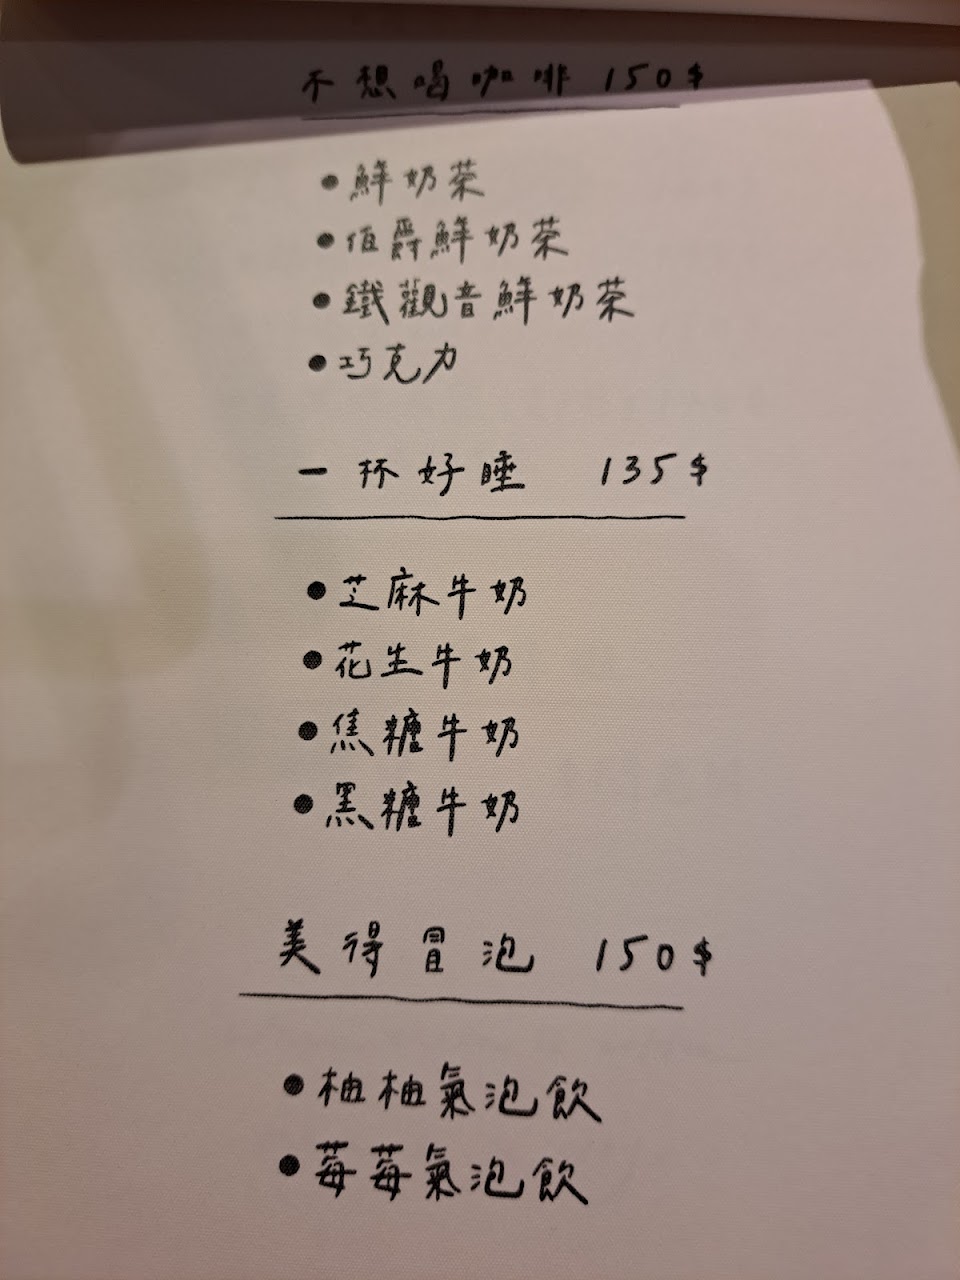 不想喝咖啡 150$
●鮮奶茶
●伯爵鮮奶茶
●鐵觀音鮮奶茶
●巧克力
一杯好睡 135$
●芝麻牛奶
●花生牛奶
●焦糖牛奶
●黑糖牛奶
美得冒泡 150$
●柚柚氣泡飲
●莓莓氣泡飲